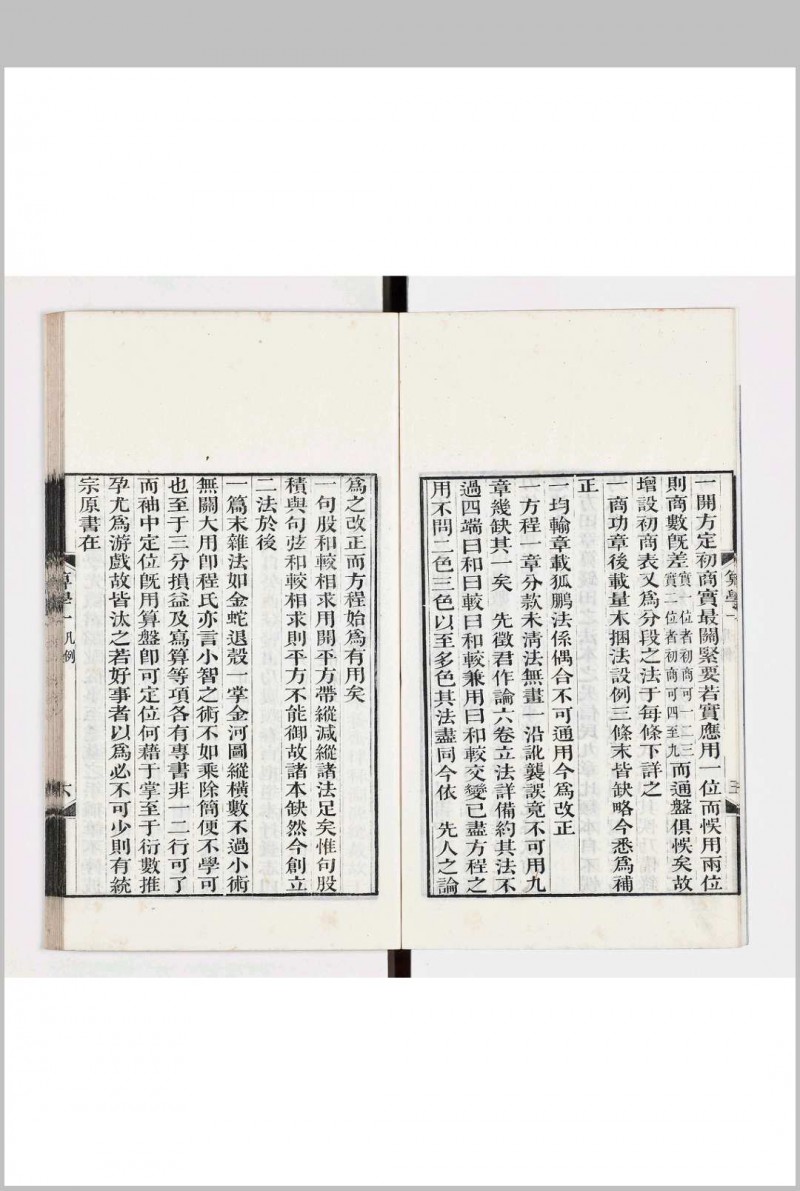 一開方定初商實最關緊要若實應用一位而悞用兩位
則商數旣差實一位者初商可一二三實二位者初商可四至九而通盤俱悞矣故
增設初商表又爲分段之法于每條下詳之
一商功章後載量木捆法設例三條末皆缺略今悉爲補
正
一均輸章載狐鵬法係偶合不可通用今爲改正
一方程一章分款未淸法無畫一沿訛襲誤竟不可用九
章幾缺其一矣 先徵君作論六卷立法詳備約其法不
過四端曰和曰較曰和較兼用曰和較交變已盡方程之
用不問二色三色以至多色其法盡同今依 先人之論
算學一
爲之改正而方程始爲有用矣
一句股和較相求用開平方帶縱減縱諸法足矣惟句股
積與句弦和較相求則平方不能御故諸本缺然今創立
二法於後
一篇末雜法如金蛇退殼一掌金河圖縱橫數不過小術
無關大用卽程氏亦言小智之術不如乘除簡便不學可
也至于三分損益及寫算等項各有專書非一二行可了
而袖中定位旣用算盤卽可定位何藉于掌至于衍數推
孕尤爲游戲故皆汰之若好事者以爲必不可少則有統
宗原書在
算學一 凡例
六